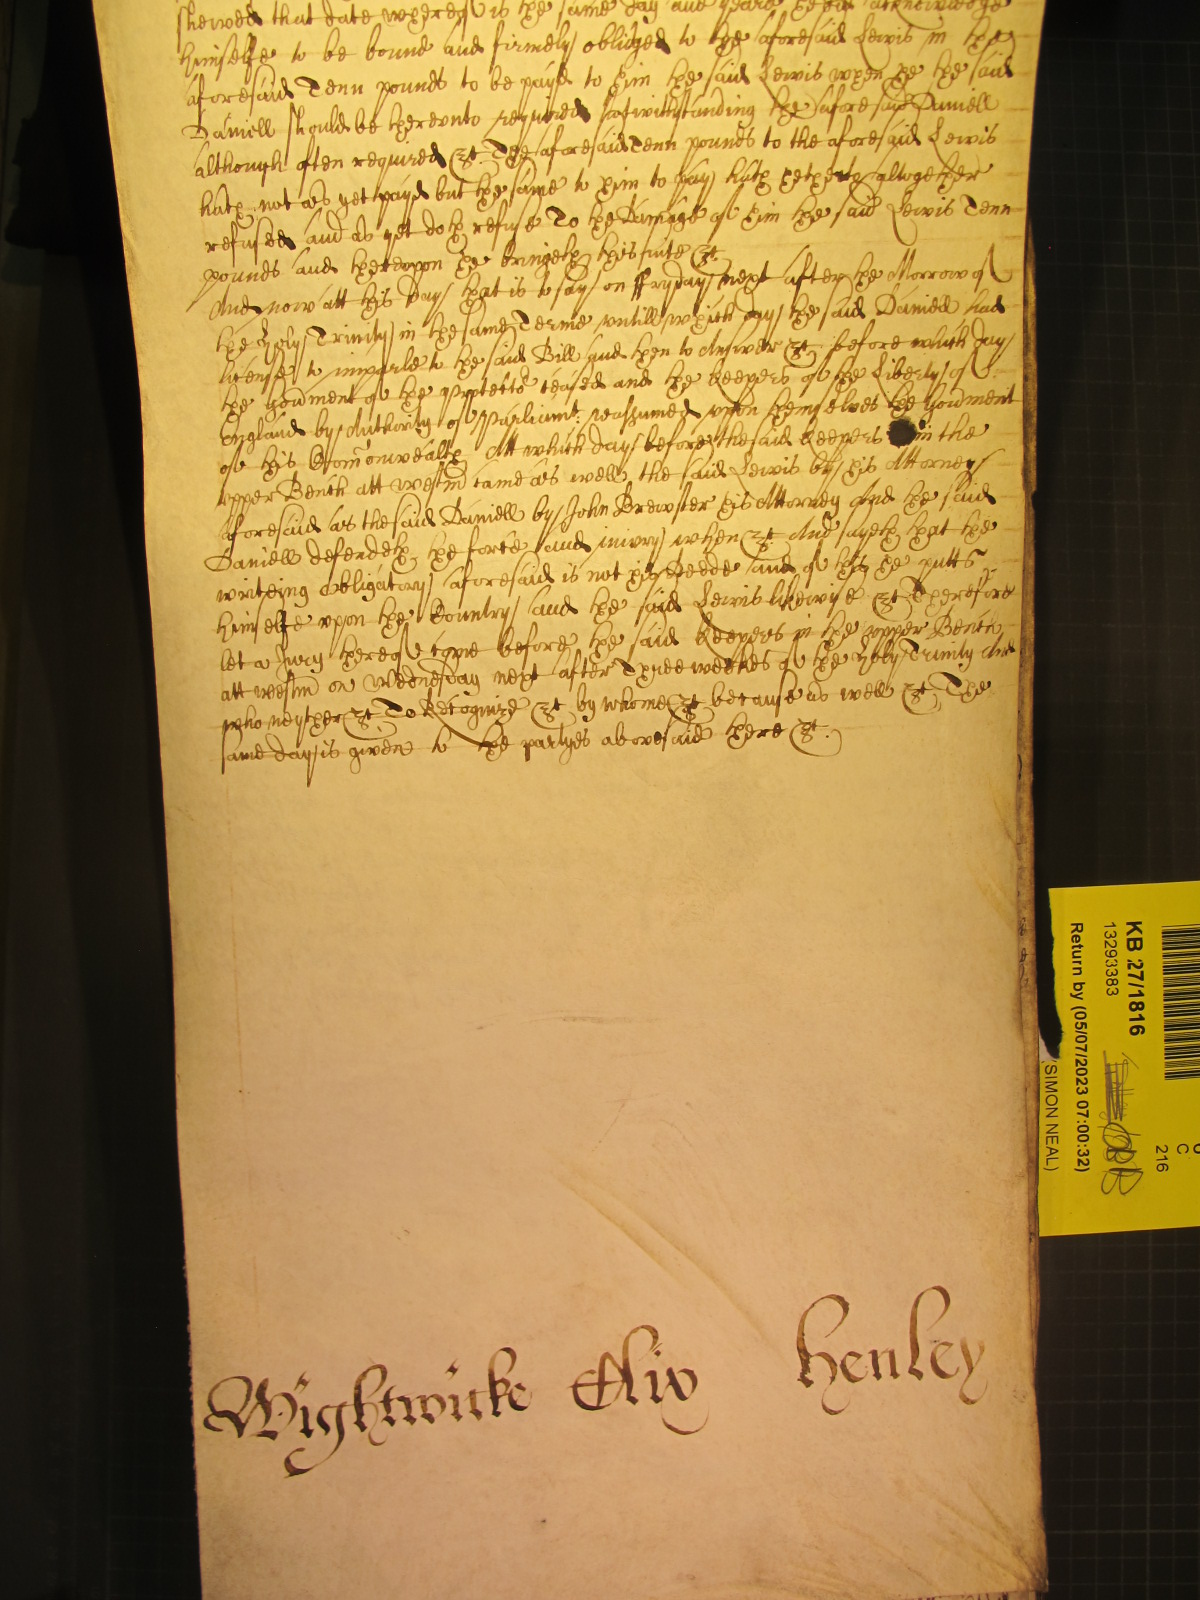 shewed that date whereof is the same day and yeare
himselfe to be bound and firmely obliged to the aforesaid Lewis in the
aforesaid Tenn pounds to be payd to him the said Lewis when he the said
Daniell should be therevnto required Notwithstanding the aforesaid Daniell
although often required &c The aforesaid Tenn pounds to the aforesaid Lewis
hath not as yet payd but the same to him to pay hath hetherto altogether
refused and as yet doth refuse To the Damage of him the said Lewis Tenn
pounds and therevpon he bringeth this suite &c
And now att this day that is to say on ffryday next after the Morrow of
the Holy Trinity in the same Terme vntill which day the said Daniell had
license to imparle to the said Bill and then to Answer &c before which day
the Goverment of the Protector ceased and the Keepers of the Liberty of
England by Authority of Parliamt: reassumed vpon themselves the Goverment
of this Comonwealth Att which day before the said Keepers in the
vpper Bench att Westm came as well the said Lewis by his Attorney
aforesaid as the said Daniell by John Brewster his Attorney And the said
Daniell defendeth the force and iniury when &c And sayeth that the
writeing obligatory aforesaid is not his Deede and of this he putts
himselfe vpon the Country and the said Lewis likewise &c Therefore
let a Jury thereof come before the said Keepers in the vpper Bench
att Westm on Wednesday next after Three weekes of the Holy Trinity And
who neyther &c To Recognize &c by whome &c because as well &c The
same day is given to the partyes abovesaid there &c.
Wightwicke Ellix Henley
KB 27/1816
13293383
Return by (05/07/2023 07:00:32)
(SIMON NEAL)
216
C